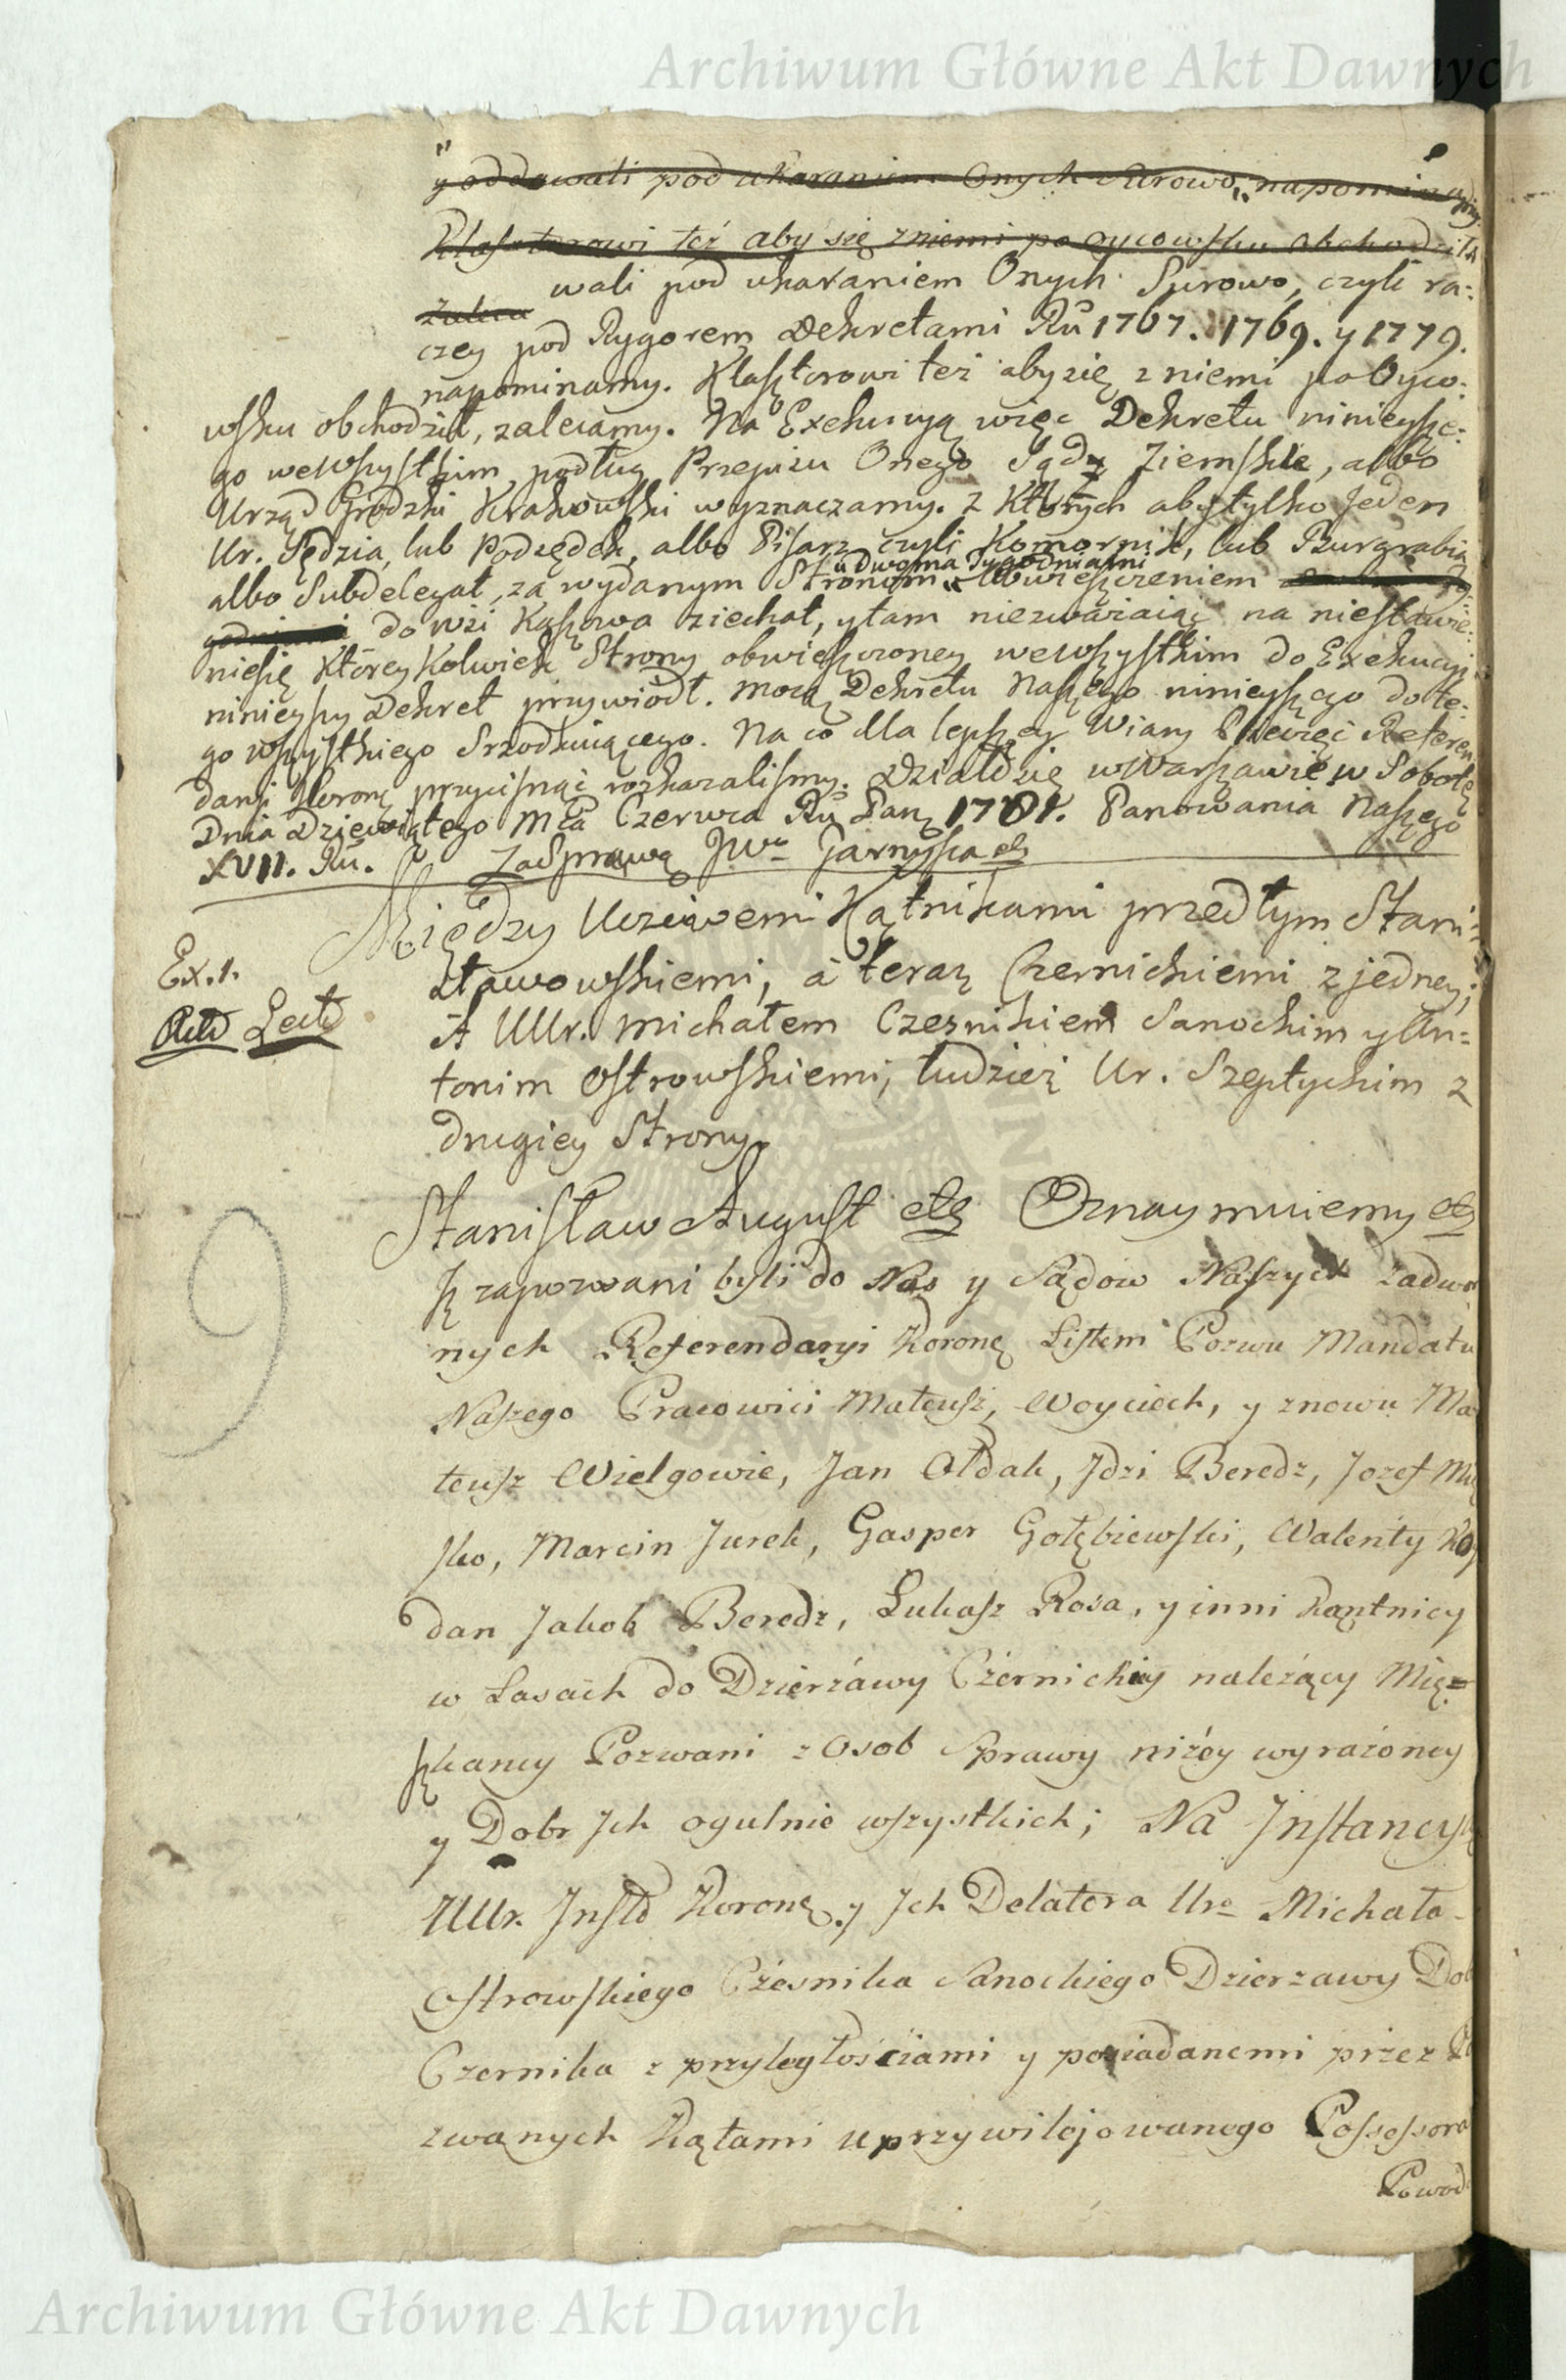 Archiwum Główne Akt Dawnych
y oddawali pod ukaraniem Onych Surowo, napomina
Klasztorowi też aby się z niemi po oycowsku obchodził
wali pod ukaraniem Onych Surowo, czyli ra:
zaleca
czey pod Rygorem Dekretami Ru 1767. 1769. y 1779.
napominamy. Klasztorowi też aby się z niemi po Oyco:
wsku obchodził, zalecamy. Na Exekucyą więc Dekretu ninieysze:
go we wszystkim podług Przepisu Onego Sądy Ziemskie, albo
Urząd Grodzki Krakowski wyznaczamy. z Których aby tylko Jeden
Ur. Sędzia, lub Podsędek, albo Pisarz czyli Komornik, lub Burgrabia
u dwoma Tygodniami
albo Subdelegat, za wydanym Stronom Obwieszczeniem
do wsi Kaszowa ziechał, y tam niezważaiąc na niestawie:
niesię Którey Kolwiek Strony obwieszczoney we wszystkim do Exekucyi
ninieyszy Dekret przywiódł. mocą Dekretu Naszego ninieyszego do te:
go wszystkiego Srzodkuiącego. Na co dla lepszey Wiary Pieczęć Referen
daryi Koronę przycisnąć rozkazalismy. Działo się w Warszawie w Sobotę
Dnia Dziewiątego Mca Czerwca Ru Pang 1781. Panowania Naszego
XVII. Ru. Za Sprawą JWo Garnysza etc
Między Uczciwemi Kątnikami przedtym Stani:
Ex. 1.
sławowskiemi, a teraz Czernickiemi z jedney;
Lecto
A UUr. Michałem Czesnikiem Sanockim y An=
tonim Ostrowskiemi, tudzież Ur. Szeptyckim z
drugiey Strony.
Stanisław August etc Oznaymuiemy etc
Jż zapozwani byli do Nas y Sądow Naszych Zadwor
nych Referendaryi Koronę Listem Pozwu Mandatu
Naszego Pracowici Mateusz, Woyciech, y znowu Ma
teusz Wielgowie, Jan Ołdak, Jdzi Beredz, Jozef Mię
sko, Marcin Jurek, Gasper Gołębiewski, Walenty
dan Jakob Beredz, Łukasz Rosa, y inni Kątnicy
w Lasach do Dzierżawy Czernickiey należący Mię=
szkancy Pozwani z Osob Sprawy niżey wyrażoney
y Dobr Jch ogulnie wszystkich; Na Jnstancyą
UUr. Jnstd Koronę y Jch Delatora Uro Michała
Ostrowskiego Czesnika Sanockiego Dzierzawy Dob
Czernika z przyległościami y posiadanemi przez Po
zwanych Kątami uprzywilejowanego Possessora
Powod
Archiwum Główne Akt Dawnych